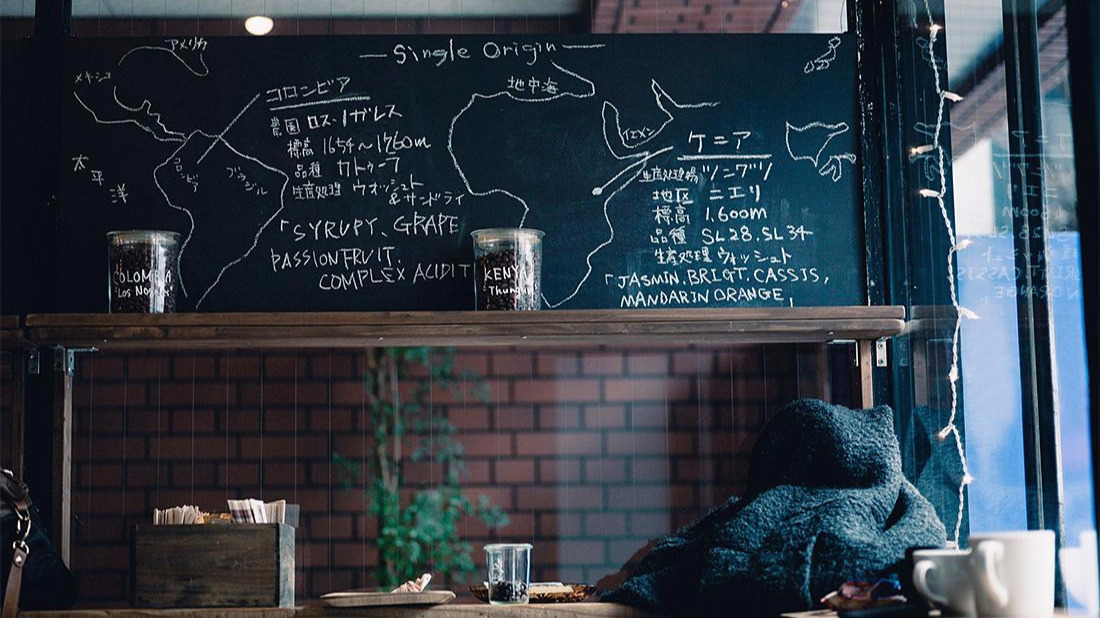 Single Origin
アメリカ
メキシコ
太平洋
コロンビア
ブラジル
コロンビア
農園 ロス・ノガレス
標高 1654~1760m
品種 カトゥーラ
生産処理 ウォッシュト
&サンドライ
「SYRUPY、GRAPE
PASSIONFRUIT.
COMPLEX ACIDIT
地中海
イエメン
ケニア
生産処理場
地区 ニエリ
標高 1,600m
品種 SL28.SL34
生産処理 ウォッシュト
「JASMIN.BRIGT.CASSIS,
MANDARIN ORANGE」
COLOMBIA
"Los No
KENYA